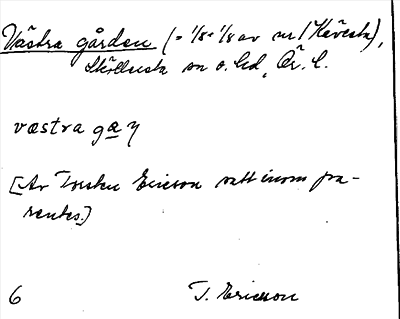 Västra gården (= 1/8+1/8 av nr 1 Kävesta),
Sköllersta sn o. hd, Ör. l.
vœstra gaɳ
[Av Torsten Ericson satt inom pa-
rentes.]
6 T. Ericson